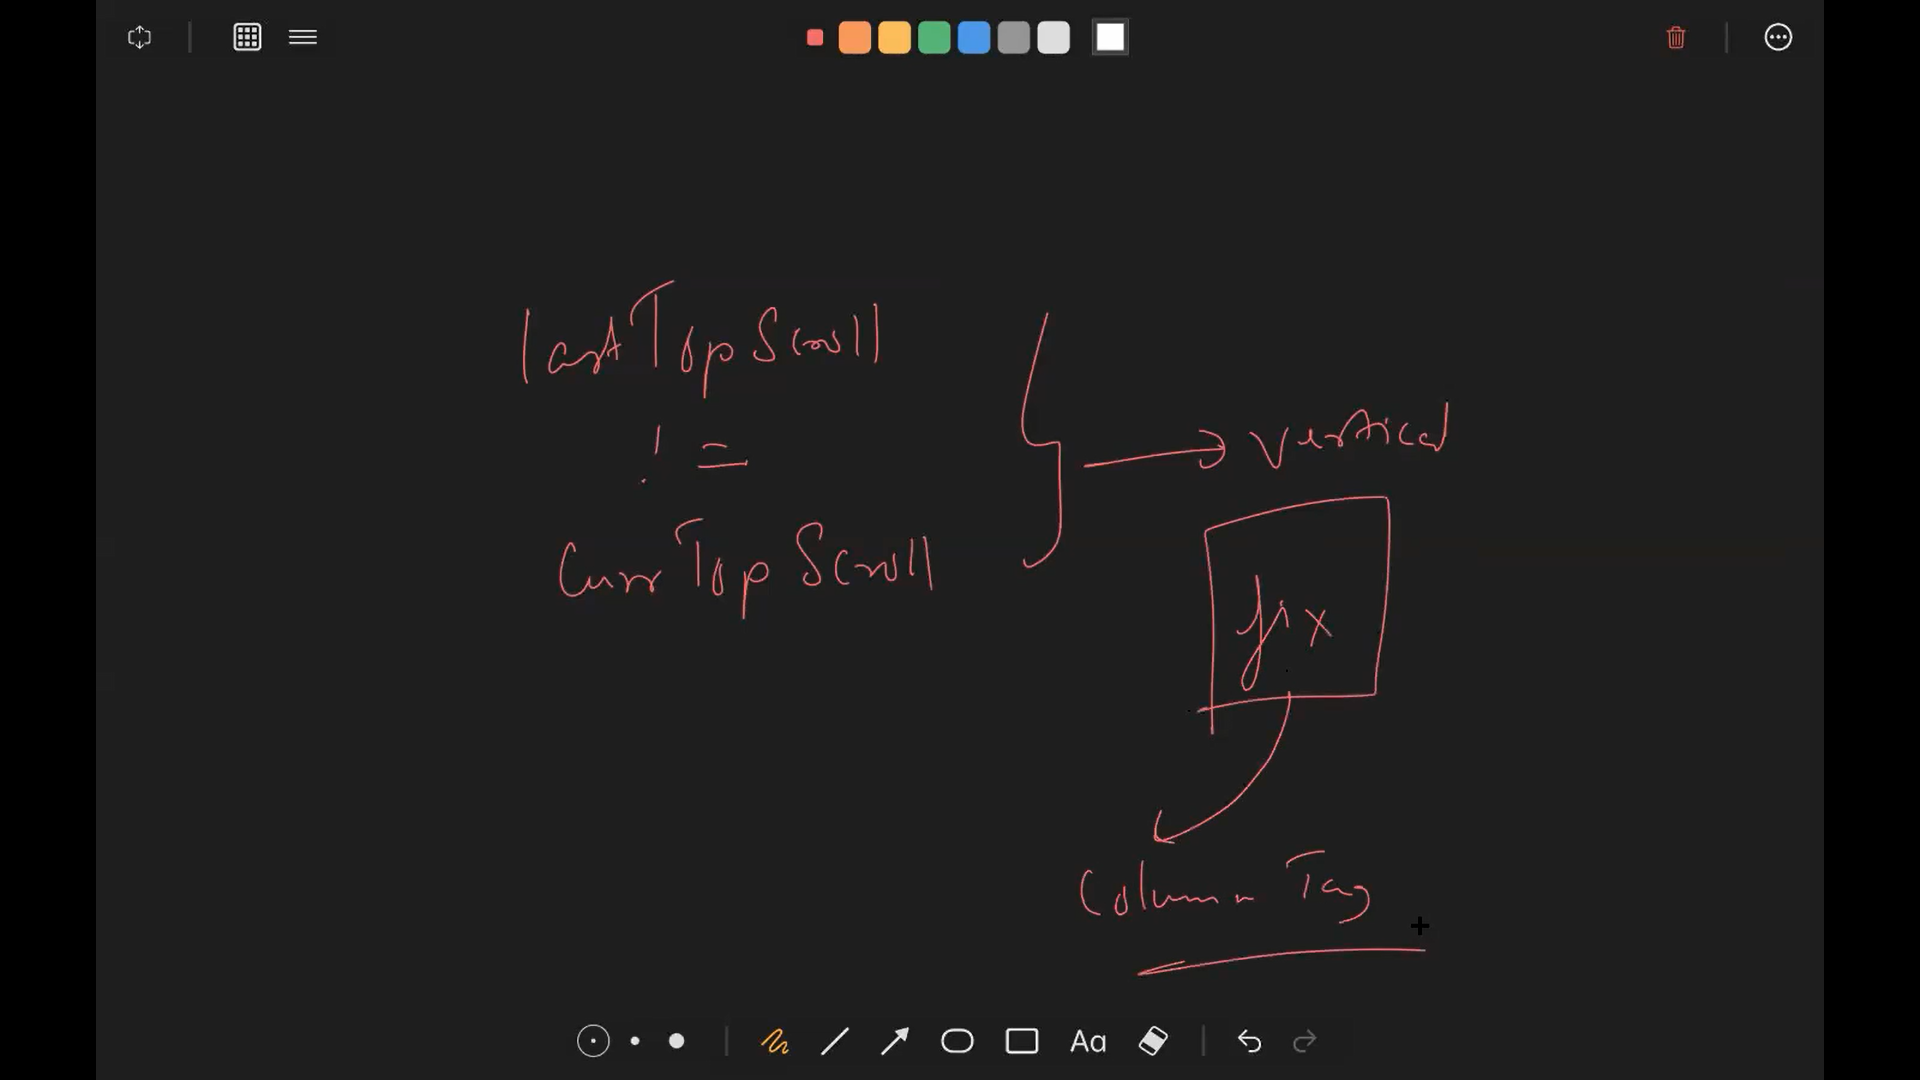 lastTopScroll
! =
CurrTopScroll
vertical
fix
Column Tag
Aa